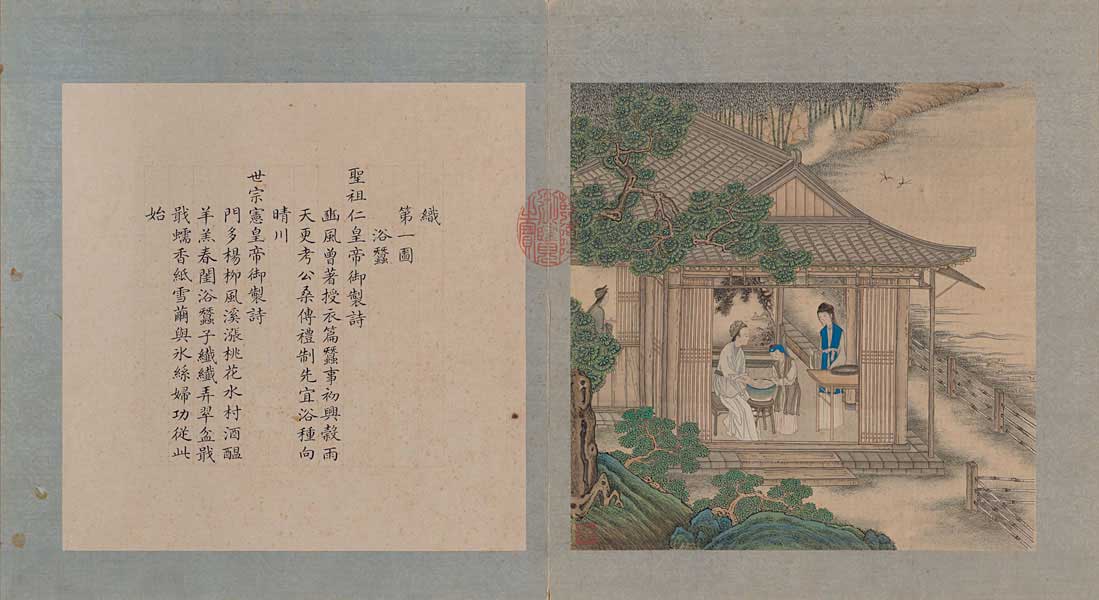 織
第一圖
浴蠶
聖祖仁皇帝御製詩
豳風曾著授衣篇蠶事初興穀雨
天更考公桑傳禮制先宜浴種向
晴川
世宗憲皇帝御製詩
門多楊柳風溪漲桃花水村酒醖
羊羔春閨浴蠶子纖纖弄翠盆戢
戢蠕香紙雪繭與氷絲婦功從此
始